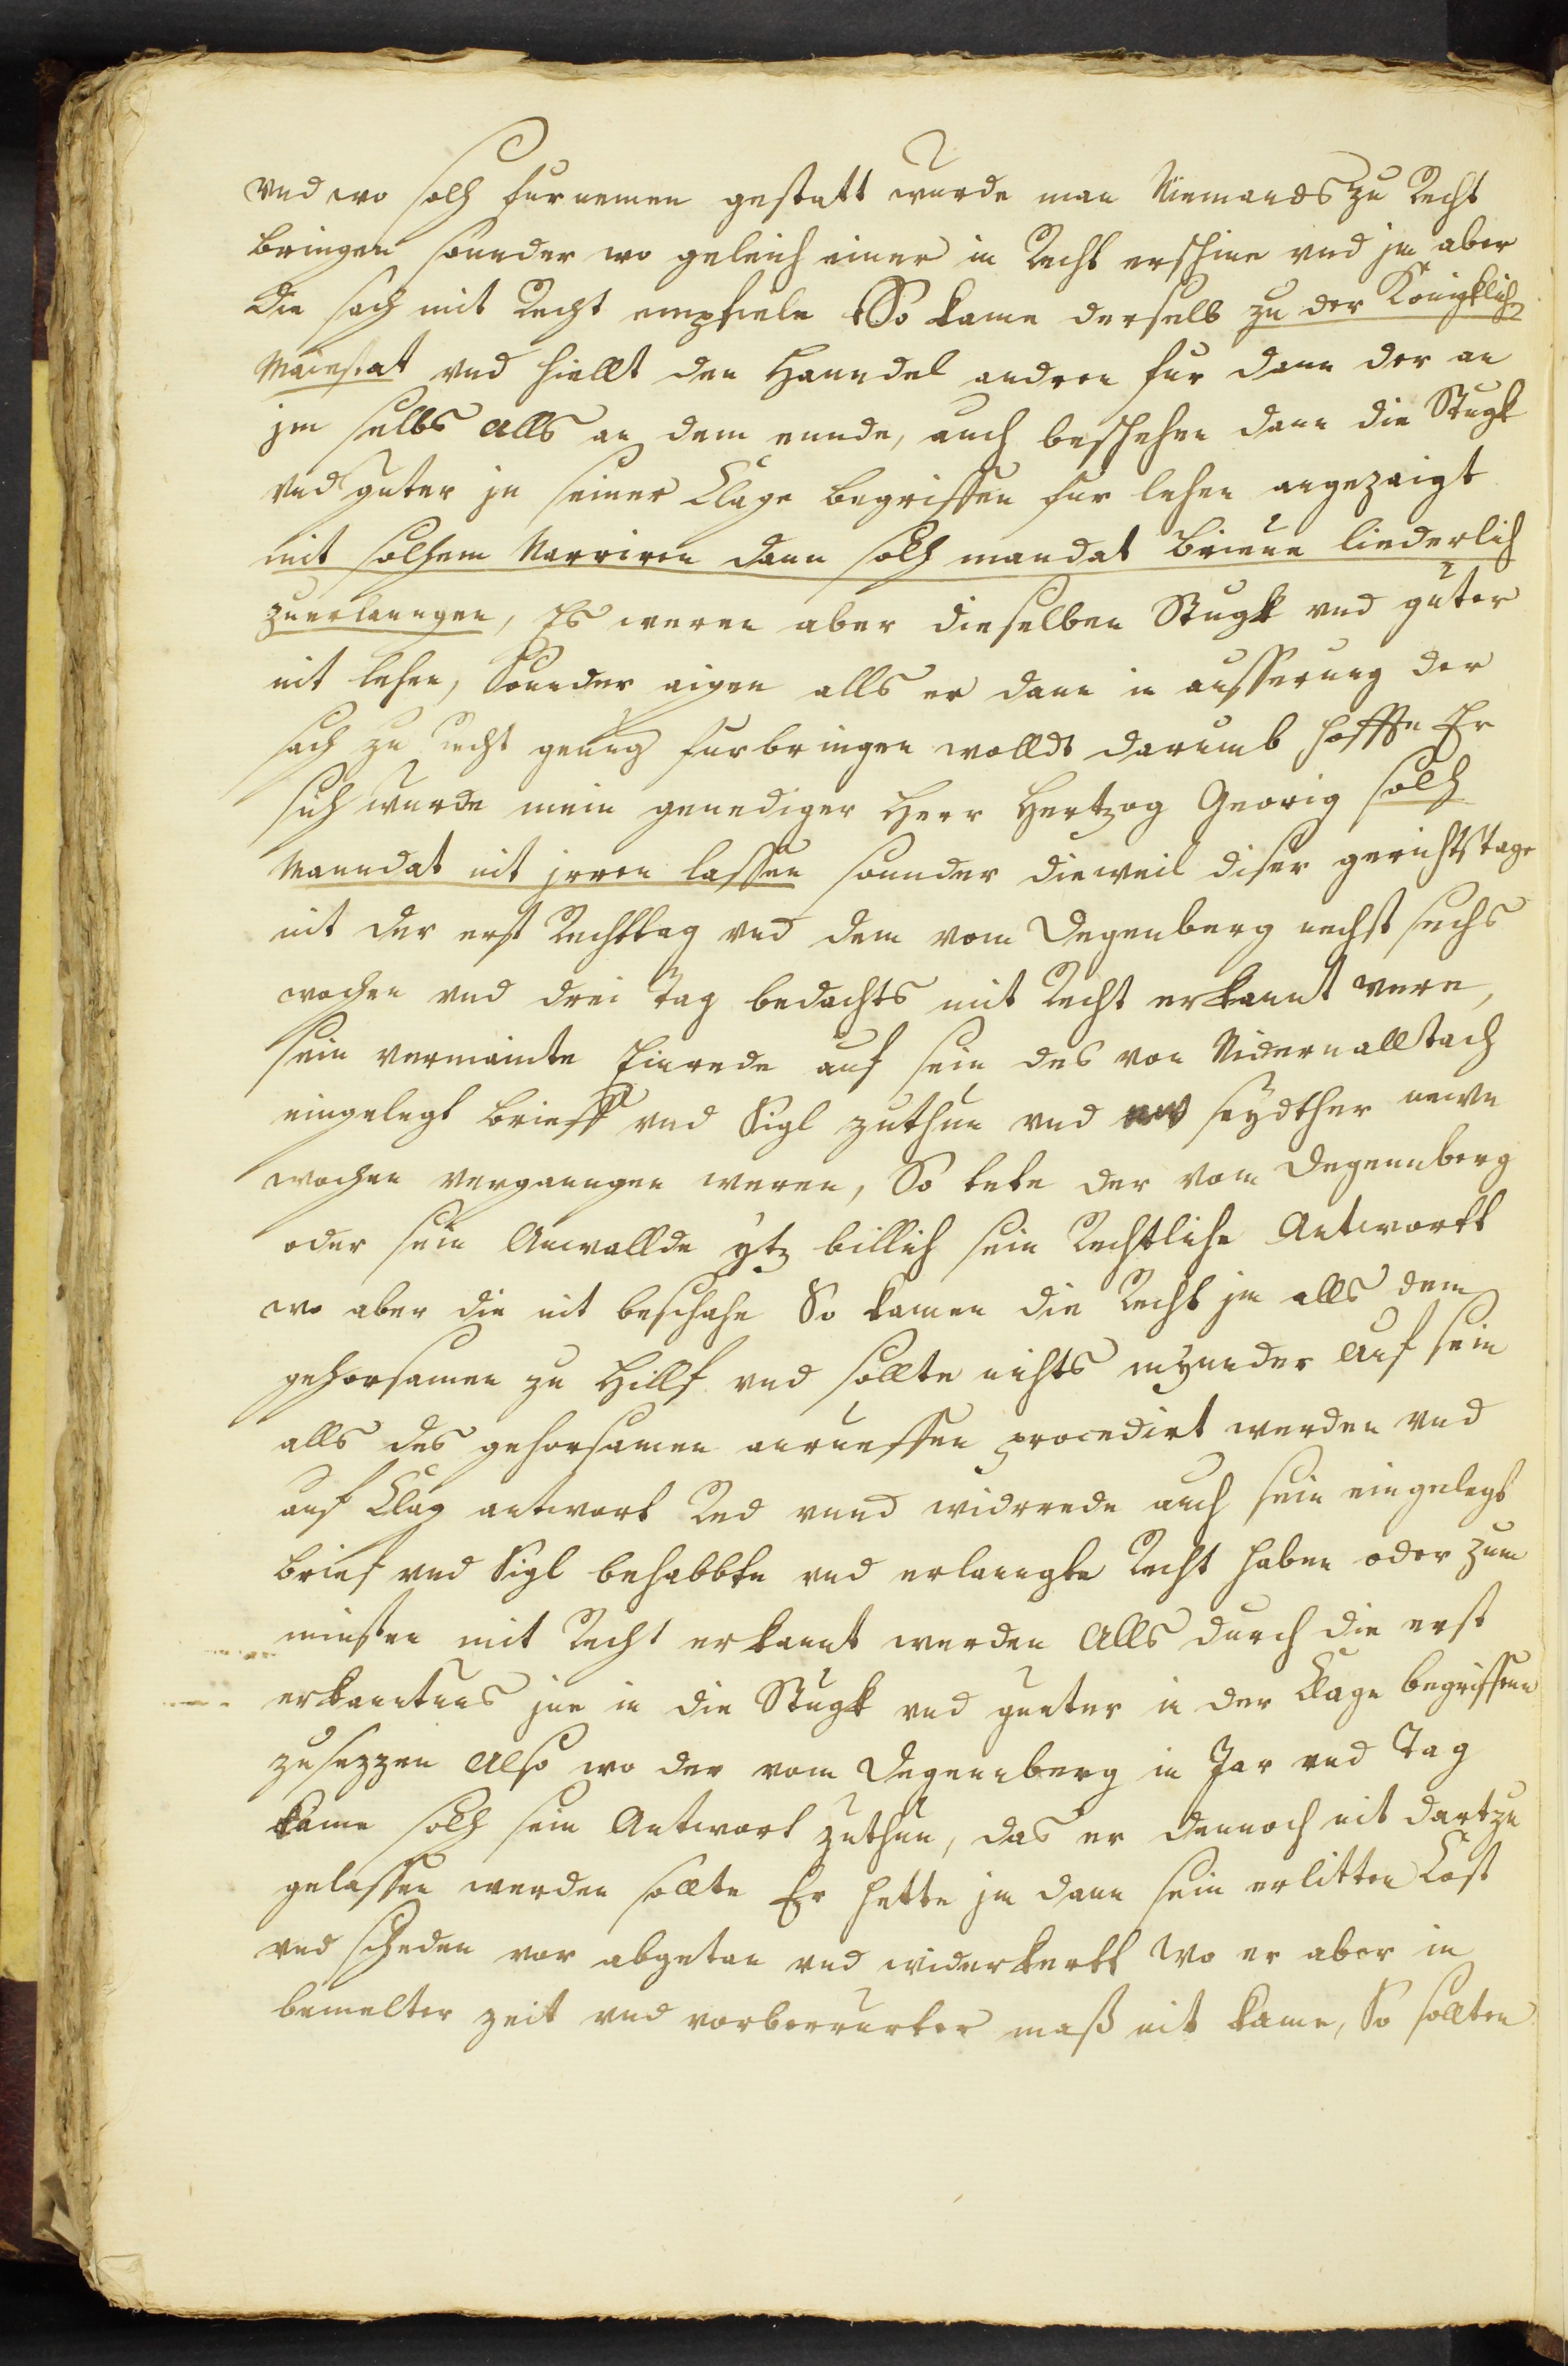 vnd wo solh furnemen gestatt wurde man Niemands zu Recht
bringen sonnder wo geleich einer in Recht erschine vnd jm aber
die sach mit Recht empfiele So kame derselb zu der Königklich
Maiestat vnd hiellt den Hanndel andren fur dann der an
jm selbs alls an dem ennde, auch beschehen dann die Stugk
vnd guter jn seiner Clage begriffen fur lehen angezaigt
mit solhem Narriren dann solh mandat brieue liederlich
zuerlanngen, Es weren aber dieselben Stugk vnd guter
nit lehen, Sonnder aigen alls er dann in ausserung der
sach zu recht genug furbringen wollde darumb hoffte Er
sich wurde mein genediger Herr Hertzog Georig solh
Manndat nit jrren lassen sonnder dieweil diser gerichtstage
nit der erst Rechttag vnd dem vom Degenberg nechst sechs
wochen vnd drei Tag bedachts mit Recht erkannt were,
sein vermainte Einrede auf sein des von Nidernalltach
eingelegt brieff vnd Sigl zuthun vnd seydther newn
wochen verganngen weren, So tete der vom Degennberg
oder sein Anwallde ytz billich sein Rechtliche Antwortt
wo aber die nit beschahe So kamen die Recht jm alls dem
gehorsamen zu Hillf vnd sollte nichts mynnder auf sein
alls des gehorsamen anrueffen procedirt werden vnd
auf Clag antwort Red vnnd widrrede auch sein eingelegt
brief vnd Sigl behabbte vnd erlanngte Recht haben oder zum
minsten mit Recht erkannt werden Alls durch die erst
erkanntnus jne in die Stugk vnd gueter in der Clage begriffen
zusezzen Also wo der vom Degennberg in Jar vnd Tag
kame solh sein Antwort zuthun, das er dennoch nit dartzu
gelassen werden sollte Er hette jm dann sein erlitten Cost
vnd scheden vor abgetan vnd widerkertt Wo er aber in
bemelter zeit vnd vorberrurter maß nit kame, So sollten